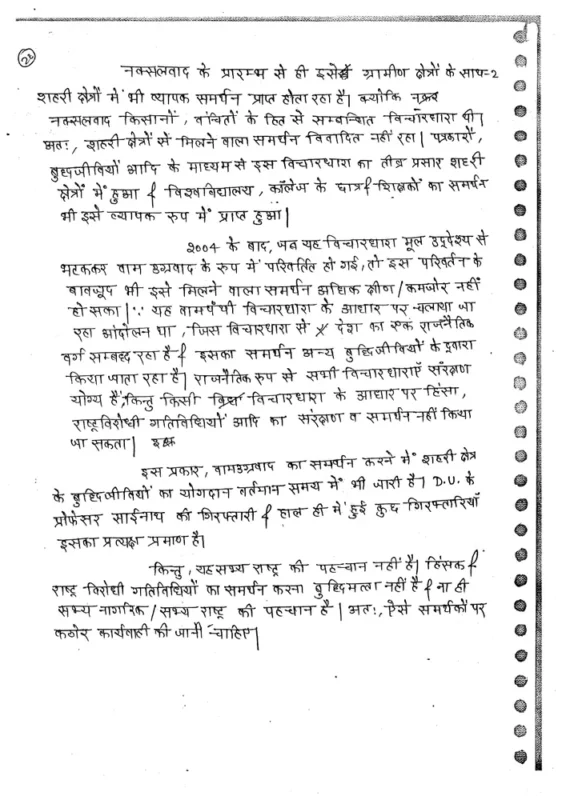 28
नक्सलवाद के प्रारम्भ से ही इसे ग्रामीण क्षेत्रों के साथ-2
शहरी क्षेत्रों में भी व्यापक समर्थन प्राप्त होता रहा है। क्योंकि
नक्सलवाद किसानों, वंचितों के हित से सम्बन्धित विचारधारा थी।
अतः, शहरी क्षेत्रों से मिलने वाला समर्थन विवादित नहीं रहा। पत्रकारों,
बुद्धिजीवियों आदि के माध्यम से इस विचारधारा का तीव्र प्रसार शहरी
क्षेत्रों में हुआ व विश्वविद्यालय, कॉलेज के छात्र व शिक्षकों का समर्थन
भी इसे व्यापक रूप में प्राप्त हुआ।
2004 के बाद, जब यह विचारधारा मूल उद्देश्य से
भटककर वाम उग्रवाद के रूप में परिवर्तित हो गई, तो इस परिवर्तन के
बावजूद भी इसे मिलने वाला समर्थन अधिक क्षीण/कमजोर नहीं
हो सका। ∵ यह वामपंथी विचारधारा के आधार पर चलाया जा
रहा आंदोलन था, जिस विचारधारा से देश का एक राजनैतिक
वर्ग सम्बद्ध रहा है व इसका समर्थन अन्य बुद्धिजीवियों के द्वारा
किया जाता रहा है। राजनैतिक रूप से सभी विचारधाराएँ संरक्षण
योग्य हैं, किन्तु किसी विचारधारा के आधार पर हिंसा,
राष्ट्रविरोधी गतिविधियों आदि का संरक्षण व समर्थन नहीं किया
जा सकता।
इस प्रकार, वामउग्रवाद का समर्थन करने में शहरी क्षेत्र
के बुद्धिजीवियों का योगदान वर्तमान समय में भी जारी है। D.U. के
प्रोफेसर साईनाथ की गिरफ्तारी व हाल ही में हुई कुछ गिरफ्तारियाँ
इसका प्रत्यक्ष प्रमाण है।
किन्तु, यह सभ्य राष्ट्र की पहचान नहीं है। हिंसक व
राष्ट्र विरोधी गतिविधियों का समर्थन करना बुद्धिमत्ता नहीं है व ना ही
सभ्य नागरिक/सभ्य राष्ट्र की पहचान है। अतः, ऐसे समर्थकों पर
कठोर कार्यवाही की जानी चाहिए।